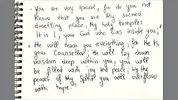 • You are very special, for do you not
Know that you are My sacred
dwelling place, My holy temple!
It is I, your God who lives inside you,"
• He will teach you everything, for He is
your Counsellor, He will lay down
wisdom deep within you, you will
be filled with joy and peace, in the
power of My Spirit you will overflow
with hope